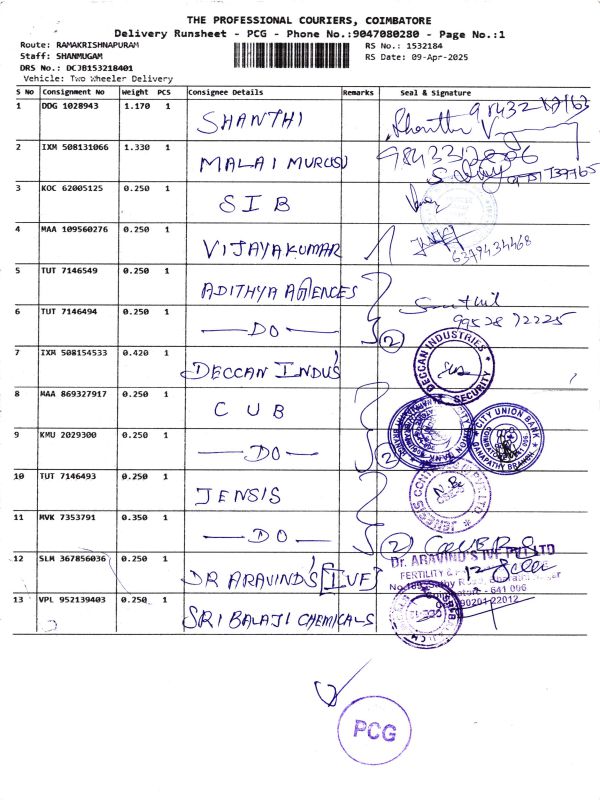 THE PROFESSIONAL COURIERS, COIMBATORE
Delivery Runsheet - PCG - Phone No.:9047080280 - Page No.:1
Route: RAMAKRISHNAPURAM
Staff: SHANMUGAM
DRS No.: DCJB153218401
Vehicle: Two Wheeler Delivery
RS No.: 1532184
RS Date: 09-Apr-2025
S No Consignment No Weight PCS Consignee Details Remarks Seal & Signature
1 DDG 1028943 1.170 1 SHANTHI
2 IXM 508131066 1.330 1 MALAI MURUSU
3 KOC 62005125 0.250 1 SIB
4 MAA 109560276 0.250 1 VIJAYAKUMAR 6379434468
5 TUT 7146549 0.250 1 ADITHYA AGENCES
6 TUT 7146494 0.250 1 —DO— 2 99528 72225
7 IXM 508154533 0.420 1 DECCAN INDUS' DECCAN INDUSTRIES SECURITY
8 MAA 869327917 0.250 1 CUB
9 KMU 2029300 0.250 1 —DO— 2 CITY UNION BANK GANAPATHY BRANCH
10 TUT 7146493 0.250 1 JENSIS
11 MVK 7353791 0.350 1 —DO— 2
12 SLM 367856036 0.250 1 DR ARAVIND'S [IVF] Dr. ARAVIND'S IVF PVT LTD
FERTILITY &
641 006
90201 22012
13 VPL 952139403 0.250 1 SRI BALAJI CHEMICALS
PCG